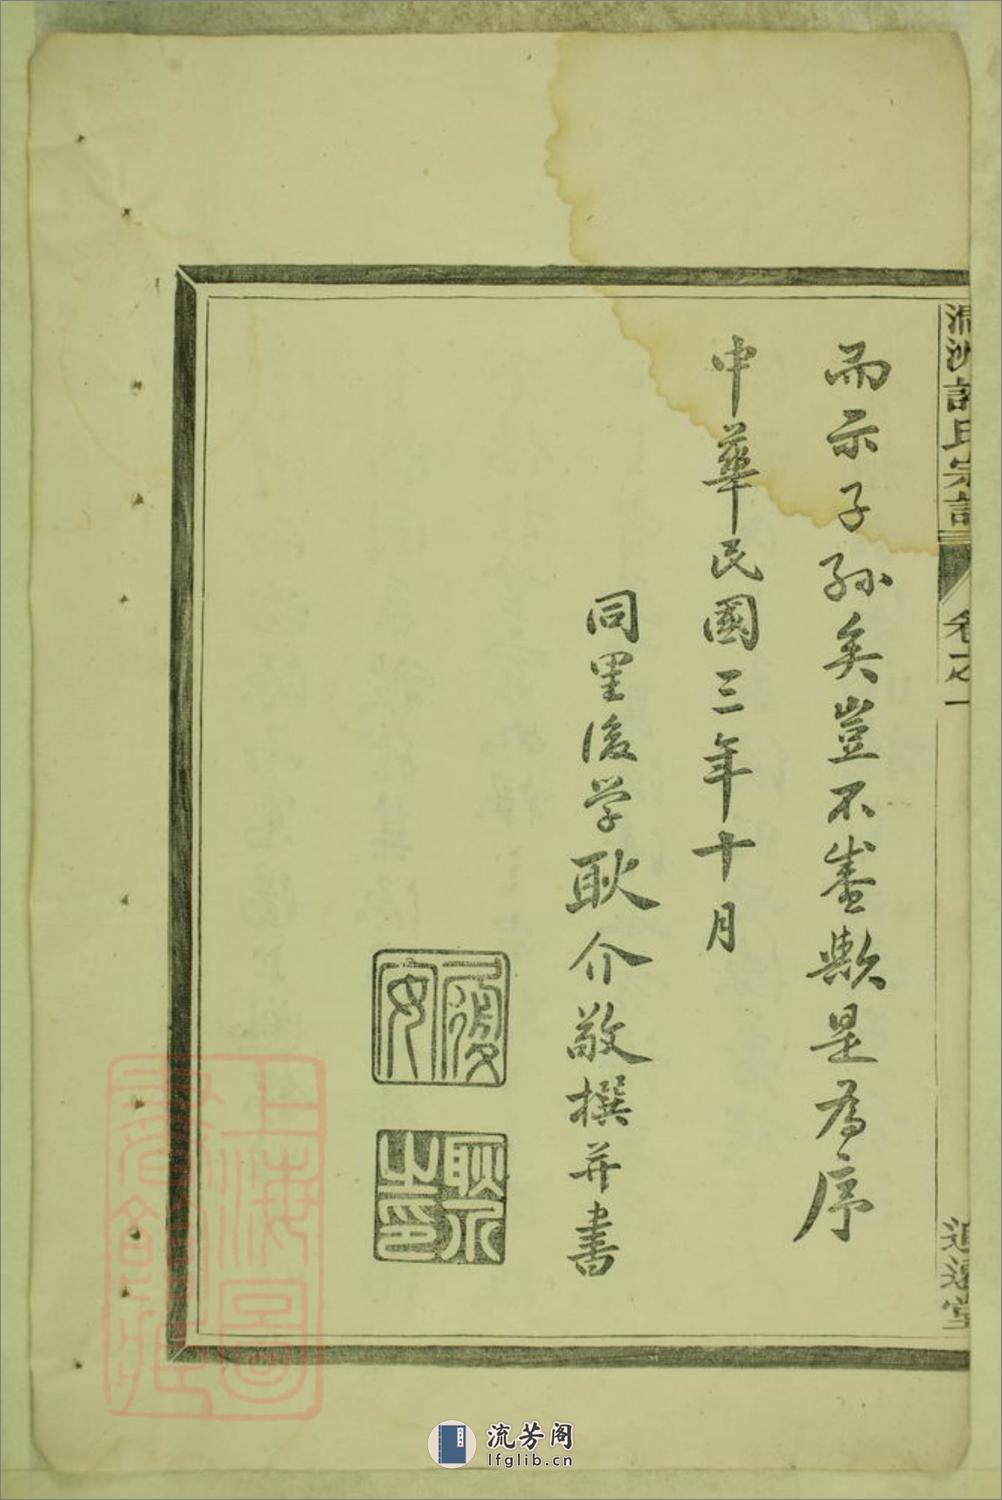 而示子孫矣豈不盛歟是為序
中華民國三年十月
同里後学耿介敬撰并書
耿介之印
許氏宗譜
卷之一
追遠堂
上海圖書館藏
流芳阁
lfglib.cn